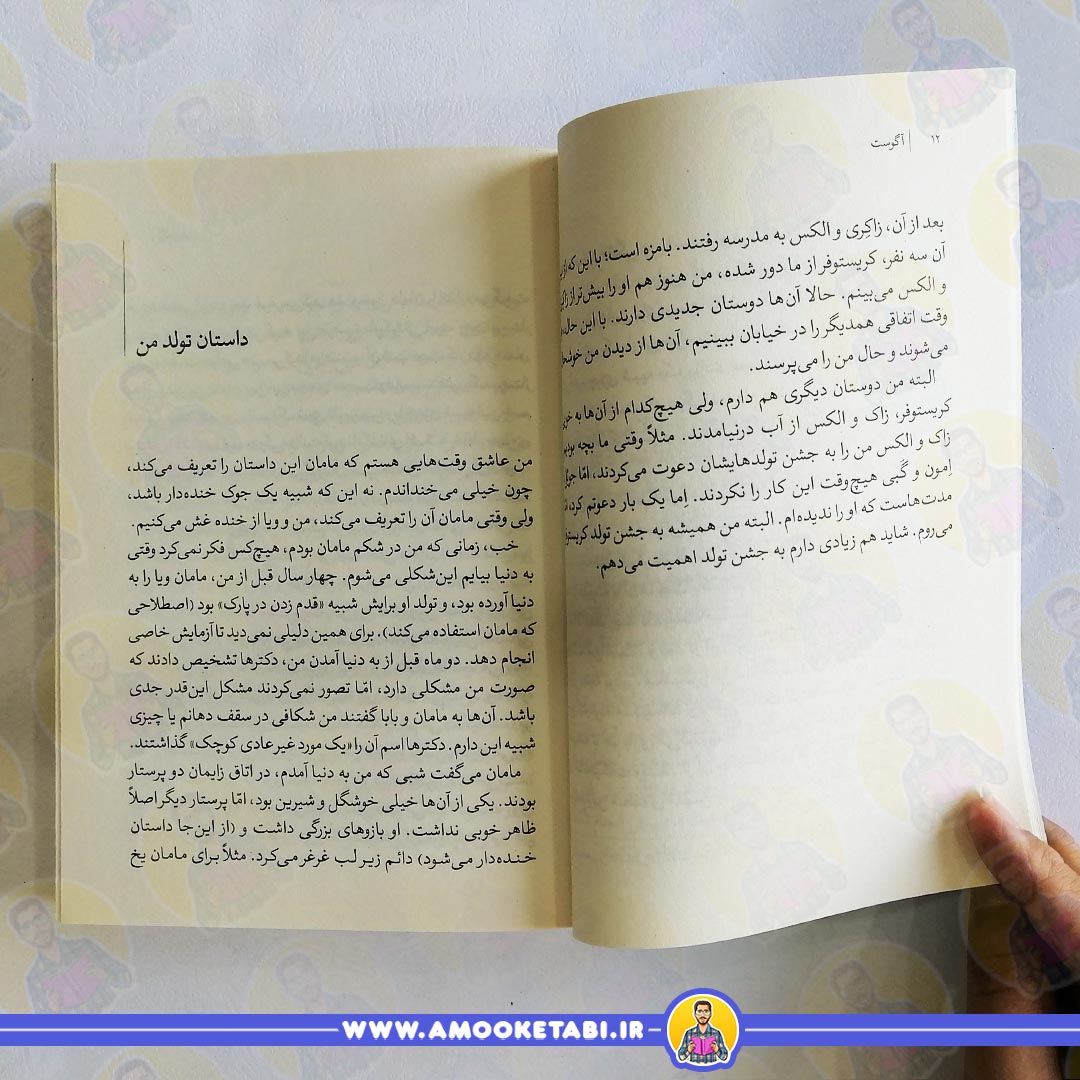 ۱۲ | آگوست
بعد از آن، زاکِری و الکس به مدرسه رفتند. بامزه است؛ با این که از
آن سه نفر، کریستوفر از ما دور شده، من هنوز هم او را بیش‌تر از
و الکس می‌بینم. حالا آن‌ها دوستان جدیدی دارند. با این حال،
وقت اتفاقی همدیگر را در خیابان ببینیم، آن‌ها از دیدن من
می‌شوند و حال من را می‌پرسند.
البته من دوستان دیگری هم دارم، ولی هیچ‌کدام از آن‌ها به
کریستوفر، زاک و الکس از آب درنیامدند. مثلاً وقتی ما بچه
زاک و الکس من را به جشن تولدهایشان دعوت می‌کردند، امّا
اِمون و گَبی هیچ‌وقت این کار را نکردند. اِما یک بار دعوتم کرد،
مدت‌هاست که او را ندیده‌ام. البته من همیشه به جشن تولد
می‌روم. شاید هم زیادی دارم به جشن تولد اهمیت می‌دهم.
داستان تولد من
من عاشق وقت‌هایی هستم که مامان این داستان را تعریف می‌کند،
چون خیلی می‌خنداندم. نه این که شبیه یک جوک خنده‌دار باشد،
ولی وقتی مامان آن را تعریف می‌کند، من و ویا از خنده غش می‌کنیم.
خب، زمانی که من در شکم مامان بودم، هیچ‌کس فکر نمی‌کرد وقتی
به دنیا بیایم این‌شکلی می‌شوم. چهار سال قبل از من، مامان ویا را به
دنیا آورده بود، و تولد او برایش شبیه «قدم زدن در پارک» بود (اصطلاحی
که مامان استفاده می‌کند). برای همین دلیلی نمی‌دید تا آزمایش خاصی
انجام دهد. دو ماه قبل از به دنیا آمدن من، دکترها تشخیص دادند که
صورت من مشکلی دارد، امّا تصور نمی‌کردند مشکل این‌قدر جدی
باشد. آن‌ها به مامان و بابا گفتند من شکافی در سقف دهانم یا چیزی
شبیه این دارم. دکترها اسم آن را «یک مورد غیرعادی کوچک» گذاشتند.
مامان می‌گفت شبی که من به دنیا آمدم، در اتاق زایمان دو پرستار
بودند. یکی از آن‌ها خیلی خوشگل و شیرین بود، امّا پرستار دیگر اصلاً
ظاهر خوبی نداشت. او بازوهای بزرگی داشت و (از این‌جا داستان
خنده‌دار می‌شود) دائم زیر لب غرغر می‌کرد. مثلاً برای مامان یخ
WWW.AMOOKETABI.IR